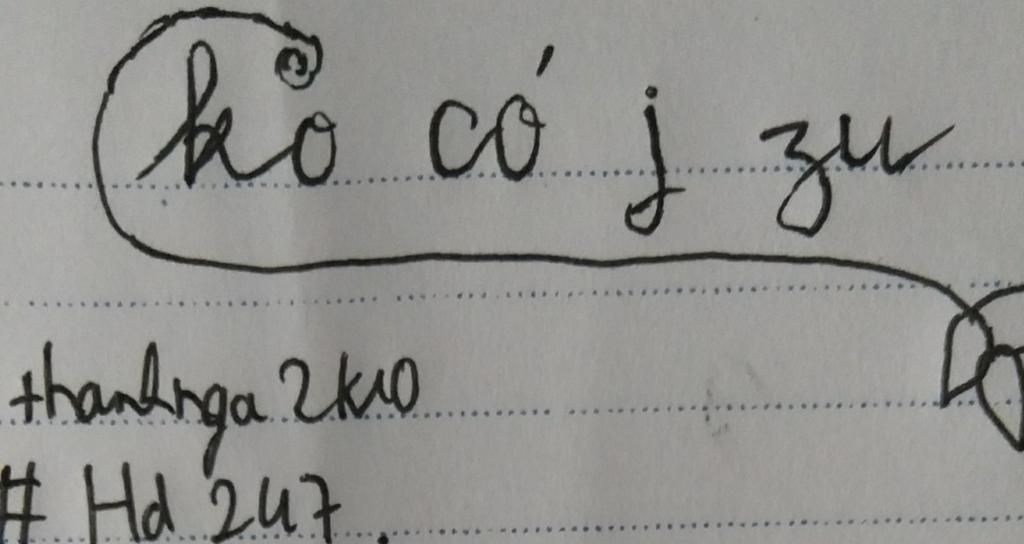 ko có j zu
thanhnga 2k10
# Hd 247.